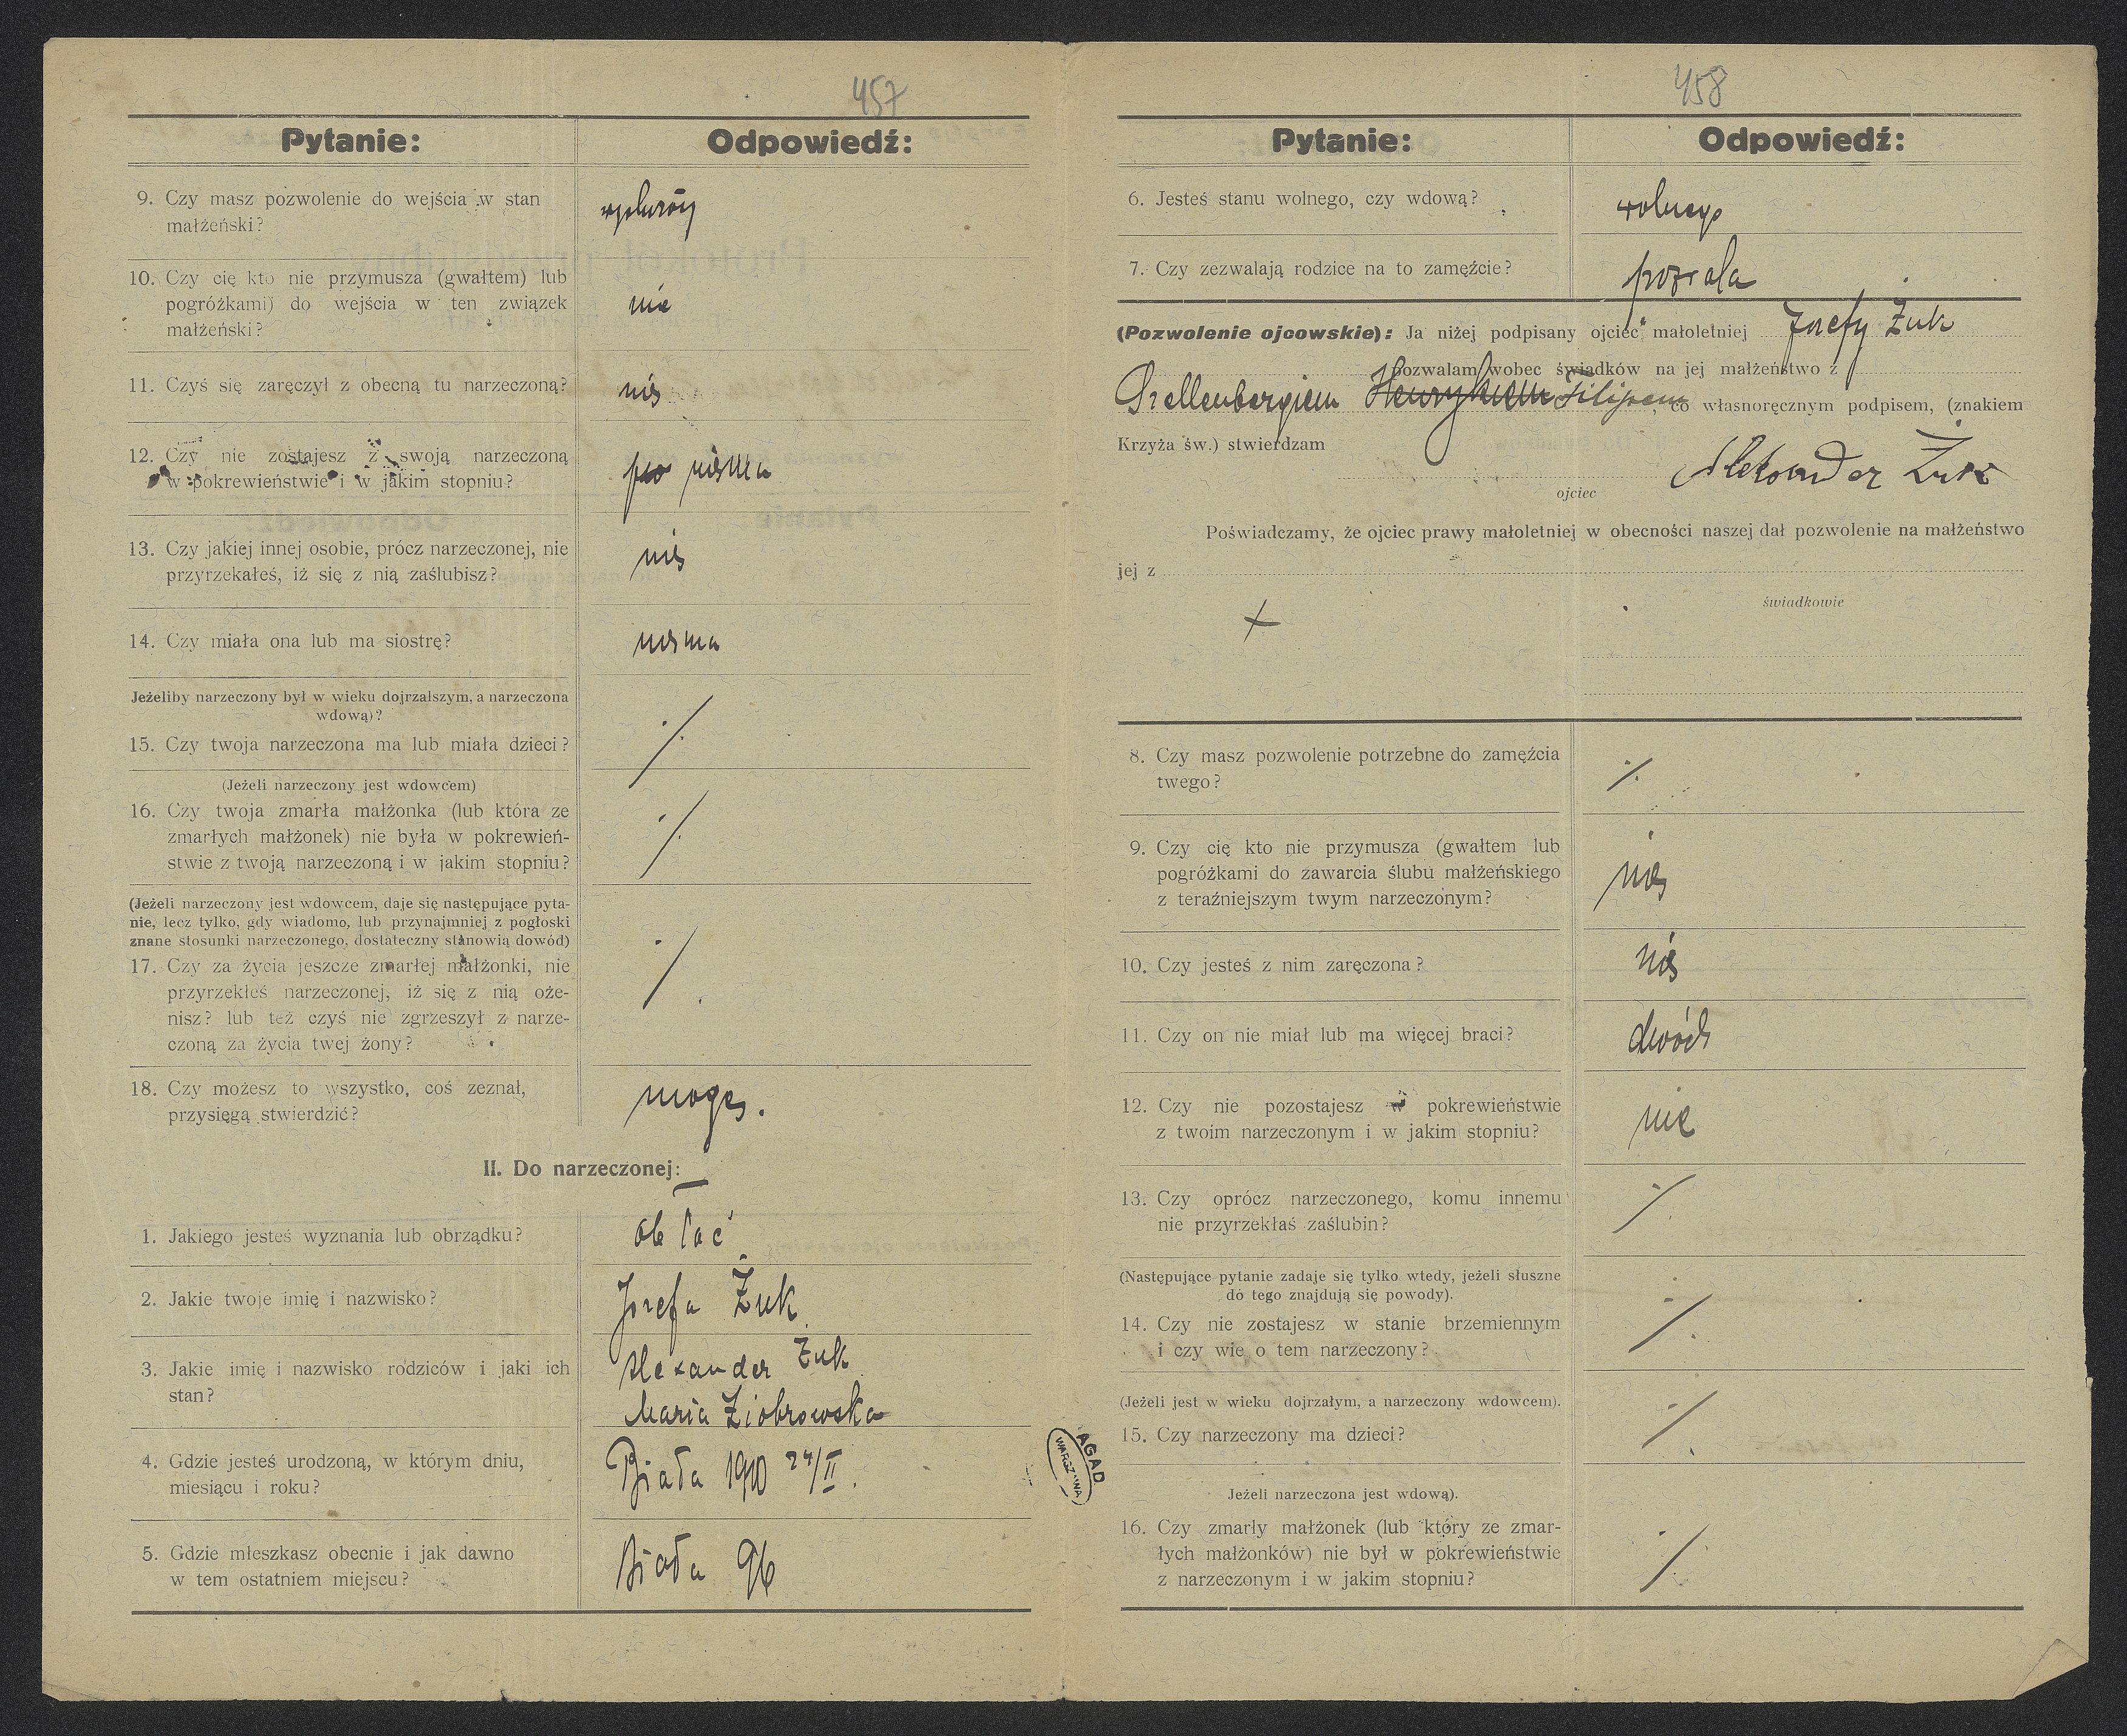 457
Pytanie:
Odpowiedź:
9. Czy masz pozwolenie do wejścia w stan
małżeński?
10. Czy cię kto nie przymusza (gwałtem) lub
pogróżkami) do wejścia w ten związek
małżeński?
nie
11. Czyś się zaręczył z obecną tu narzeczoną?
nie
12. Czy nie zostajesz z swoją narzeczoną
w pokrewieństwie i w jakim stopniu?
niema
13. Czy jakiej innej osobie, prócz narzeczonej, nie
przyrzekałeś, iż się z nią zaślubisz?
nie
14. Czy miała ona lub ma siostrę?
niema
Jeżeliby narzeczony był w wieku dojrzalszym, a narzeczona
wdową)?
15. Czy twoja narzeczona ma lub miała dzieci?
·/.
(Jeżeli narzeczony jest wdowcem)
16. Czy twoja zmarła małżonka (lub która ze
zmarłych małżonek) nie była w pokrewień-
stwie z twoją narzeczoną i w jakim stopniu?
·/.
(Jeżeli narzeczony jest wdowcem, daje się następujące pyta-
nie, lecz tylko, gdy wiadomo, lub przynajmniej z pogłoski
znane stosunki narzeczonego, dostateczny stanowią dowód)
17. Czy za życia jeszcze zmarłej małżonki, nie
przyrzekłeś narzeczonej, iż się z nią oże-
nisz? lub też czyś nie zgrzeszył z narze-
czoną za życia twej żony?
·/.
18. Czy możesz to wszystko, coś zeznał,
przysięgą stwierdzić?
mogę.
II. Do narzeczonej:
1. Jakiego jesteś wyznania lub obrządku?
ob łać
2. Jakie twoje imię i nazwisko?
Józefa Żuk
3. Jakie imię i nazwisko rodziców i jaki ich
stan?
Alexander Żuk
Maria Ziobrowska
4. Gdzie jesteś urodzoną, w którym dniu,
miesiącu i roku?
Biała 1910 24/II.
5. Gdzie mieszkasz obecnie i jak dawno
w tem ostatniem miejscu?
Biała 96
AGAD
WARSZAWA
458
Pytanie:
Odpowiedź:
6. Jesteś stanu wolnego, czy wdową?
wolnego
7. Czy zezwalają rodzice na to zamęźcie?
(Pozwolenie ojcowskie): Ja niżej podpisany ojciec małoletniej Józefy Żuk
pozwalam wobec świadków na jej małżeństwo z
Szellenbergiem Henrykiem Filipem, co własnoręcznym podpisem, (znakiem
Krzyża św.) stwierdzam
Aleksander Żuk
ojciec
Poświadczamy, że ojciec prawy małoletniej w obecności naszej dał pozwolenie na małżeństwo
jej z
świadkowie
+
8. Czy masz pozwolenie potrzebne do zamęźcia
twego?
·/.
9. Czy cię kto nie przymusza (gwałtem lub
pogróżkami do zawarcia ślubu małżeńskiego
z teraźniejszym twym narzeczonym?
nie
10. Czy jesteś z nim zaręczona?
nie
11. Czy on nie miał lub ma więcej braci?
dwóch
12. Czy nie pozostajesz w pokrewieństwie
z twoim narzeczonym i w jakim stopniu?
nie
13. Czy oprócz narzeczonego, komu innemu
nie przyrzekłaś zaślubin?
·/.
(Następujące pytanie zadaje się tylko wtedy, jeżeli słuszne
do tego znajdują się powody).
14. Czy nie zostajesz w stanie brzemiennym
i czy wie o tem narzeczony?
·/.
(Jeżeli jest w wieku dojrzałym, a narzeczony wdowcem).
15. Czy narzeczony ma dzieci?
·/.
Jeżeli narzeczona jest wdową).
16. Czy zmarly małżonek (lub który ze zmar-
łych małżonków) nie był w pokrewieństwie
z narzeczonym i w jakim stopniu?
·/.